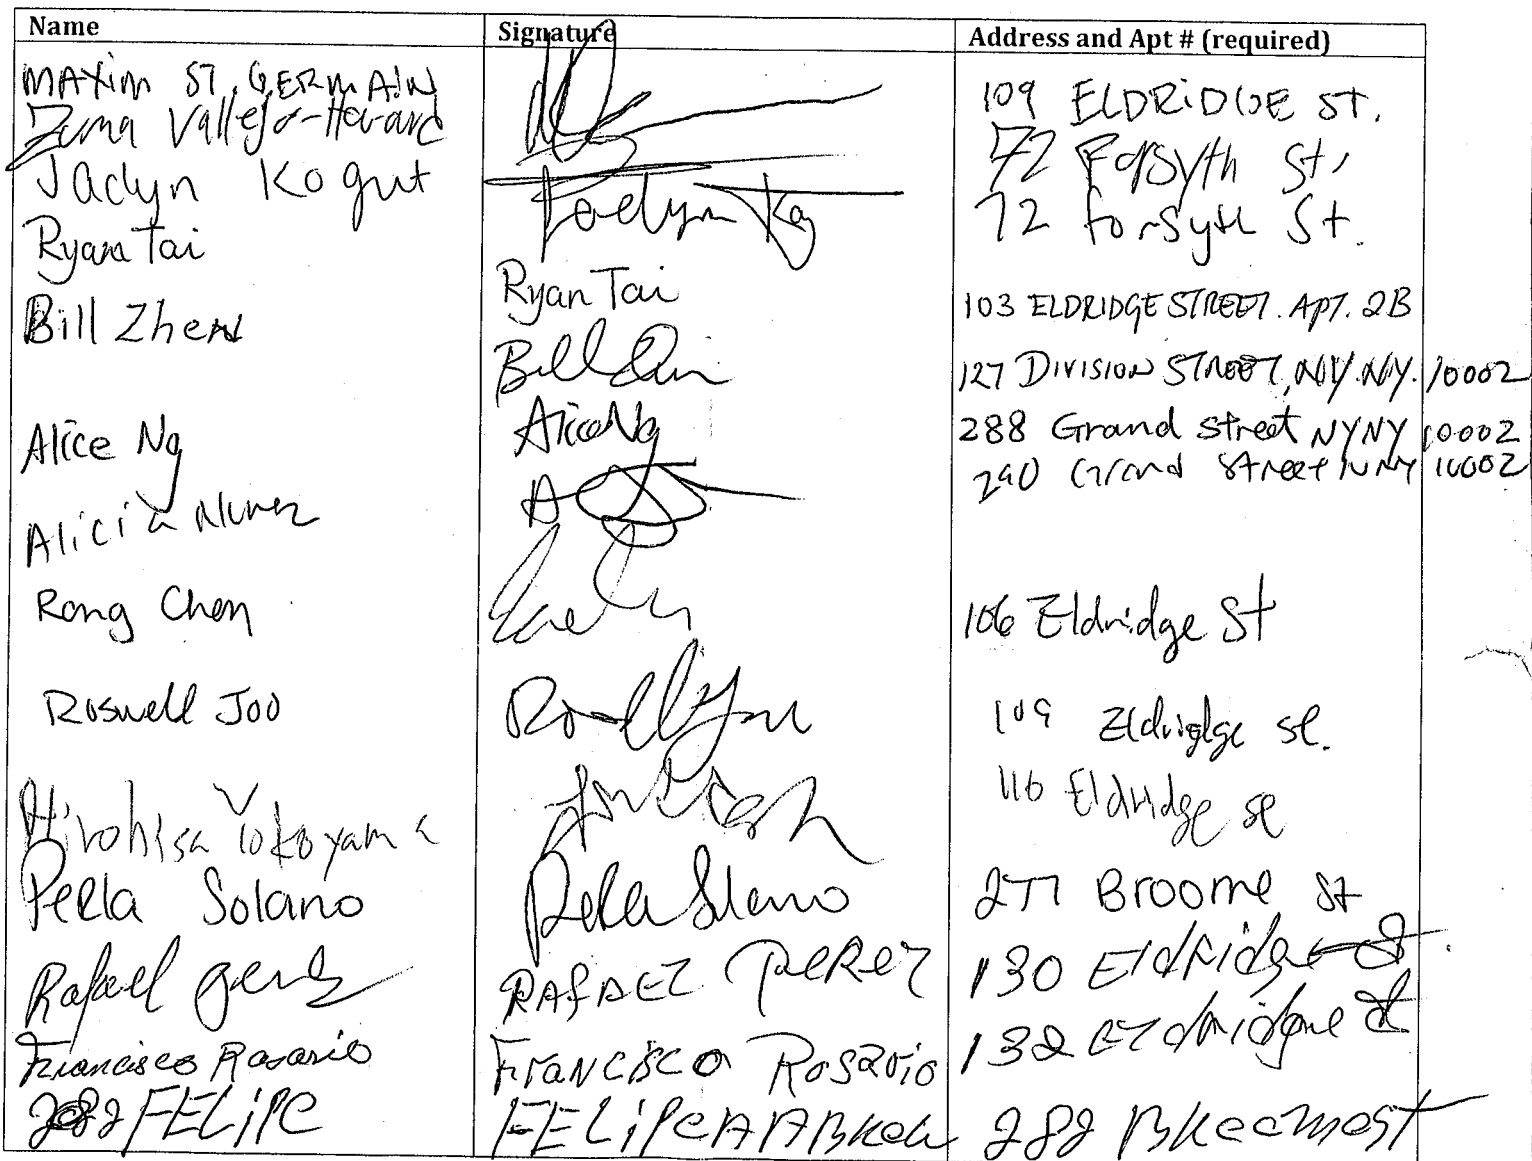 Name Signature Address and Apt # (required)
MAXIM ST. GERMAIN 109 ELDRIDGE ST.
Zuma Vallejo-Howard 72 Forsyth St.
Jaclyn Kogut Jaclyn Kog 72 Forsyth St.
Ryan Tai Ryan Tai 103 ELDRIDGE STREET. APT. 2B
Bill Zhen Bill 127 DIVISION STREET, NY. NY. 10002
Alice Ng Alice Ng 288 Grand Street NY NY 10002
Alicia Nunez A 290 Grand Street NY NY 10002
Rong Chen 106 Eldridge St
Roswell Joo 109 Eldridge St.
Hirohisa Yokoyama 116 Eldridge St
Perla Solano Perla Solano 277 Broome St
Rafael RAFAEL PEREZ 130 Eldridge St.
Francisco Rosario Francisco Rosario 132 Eldridge St
282 FELIPE FELIPE 282